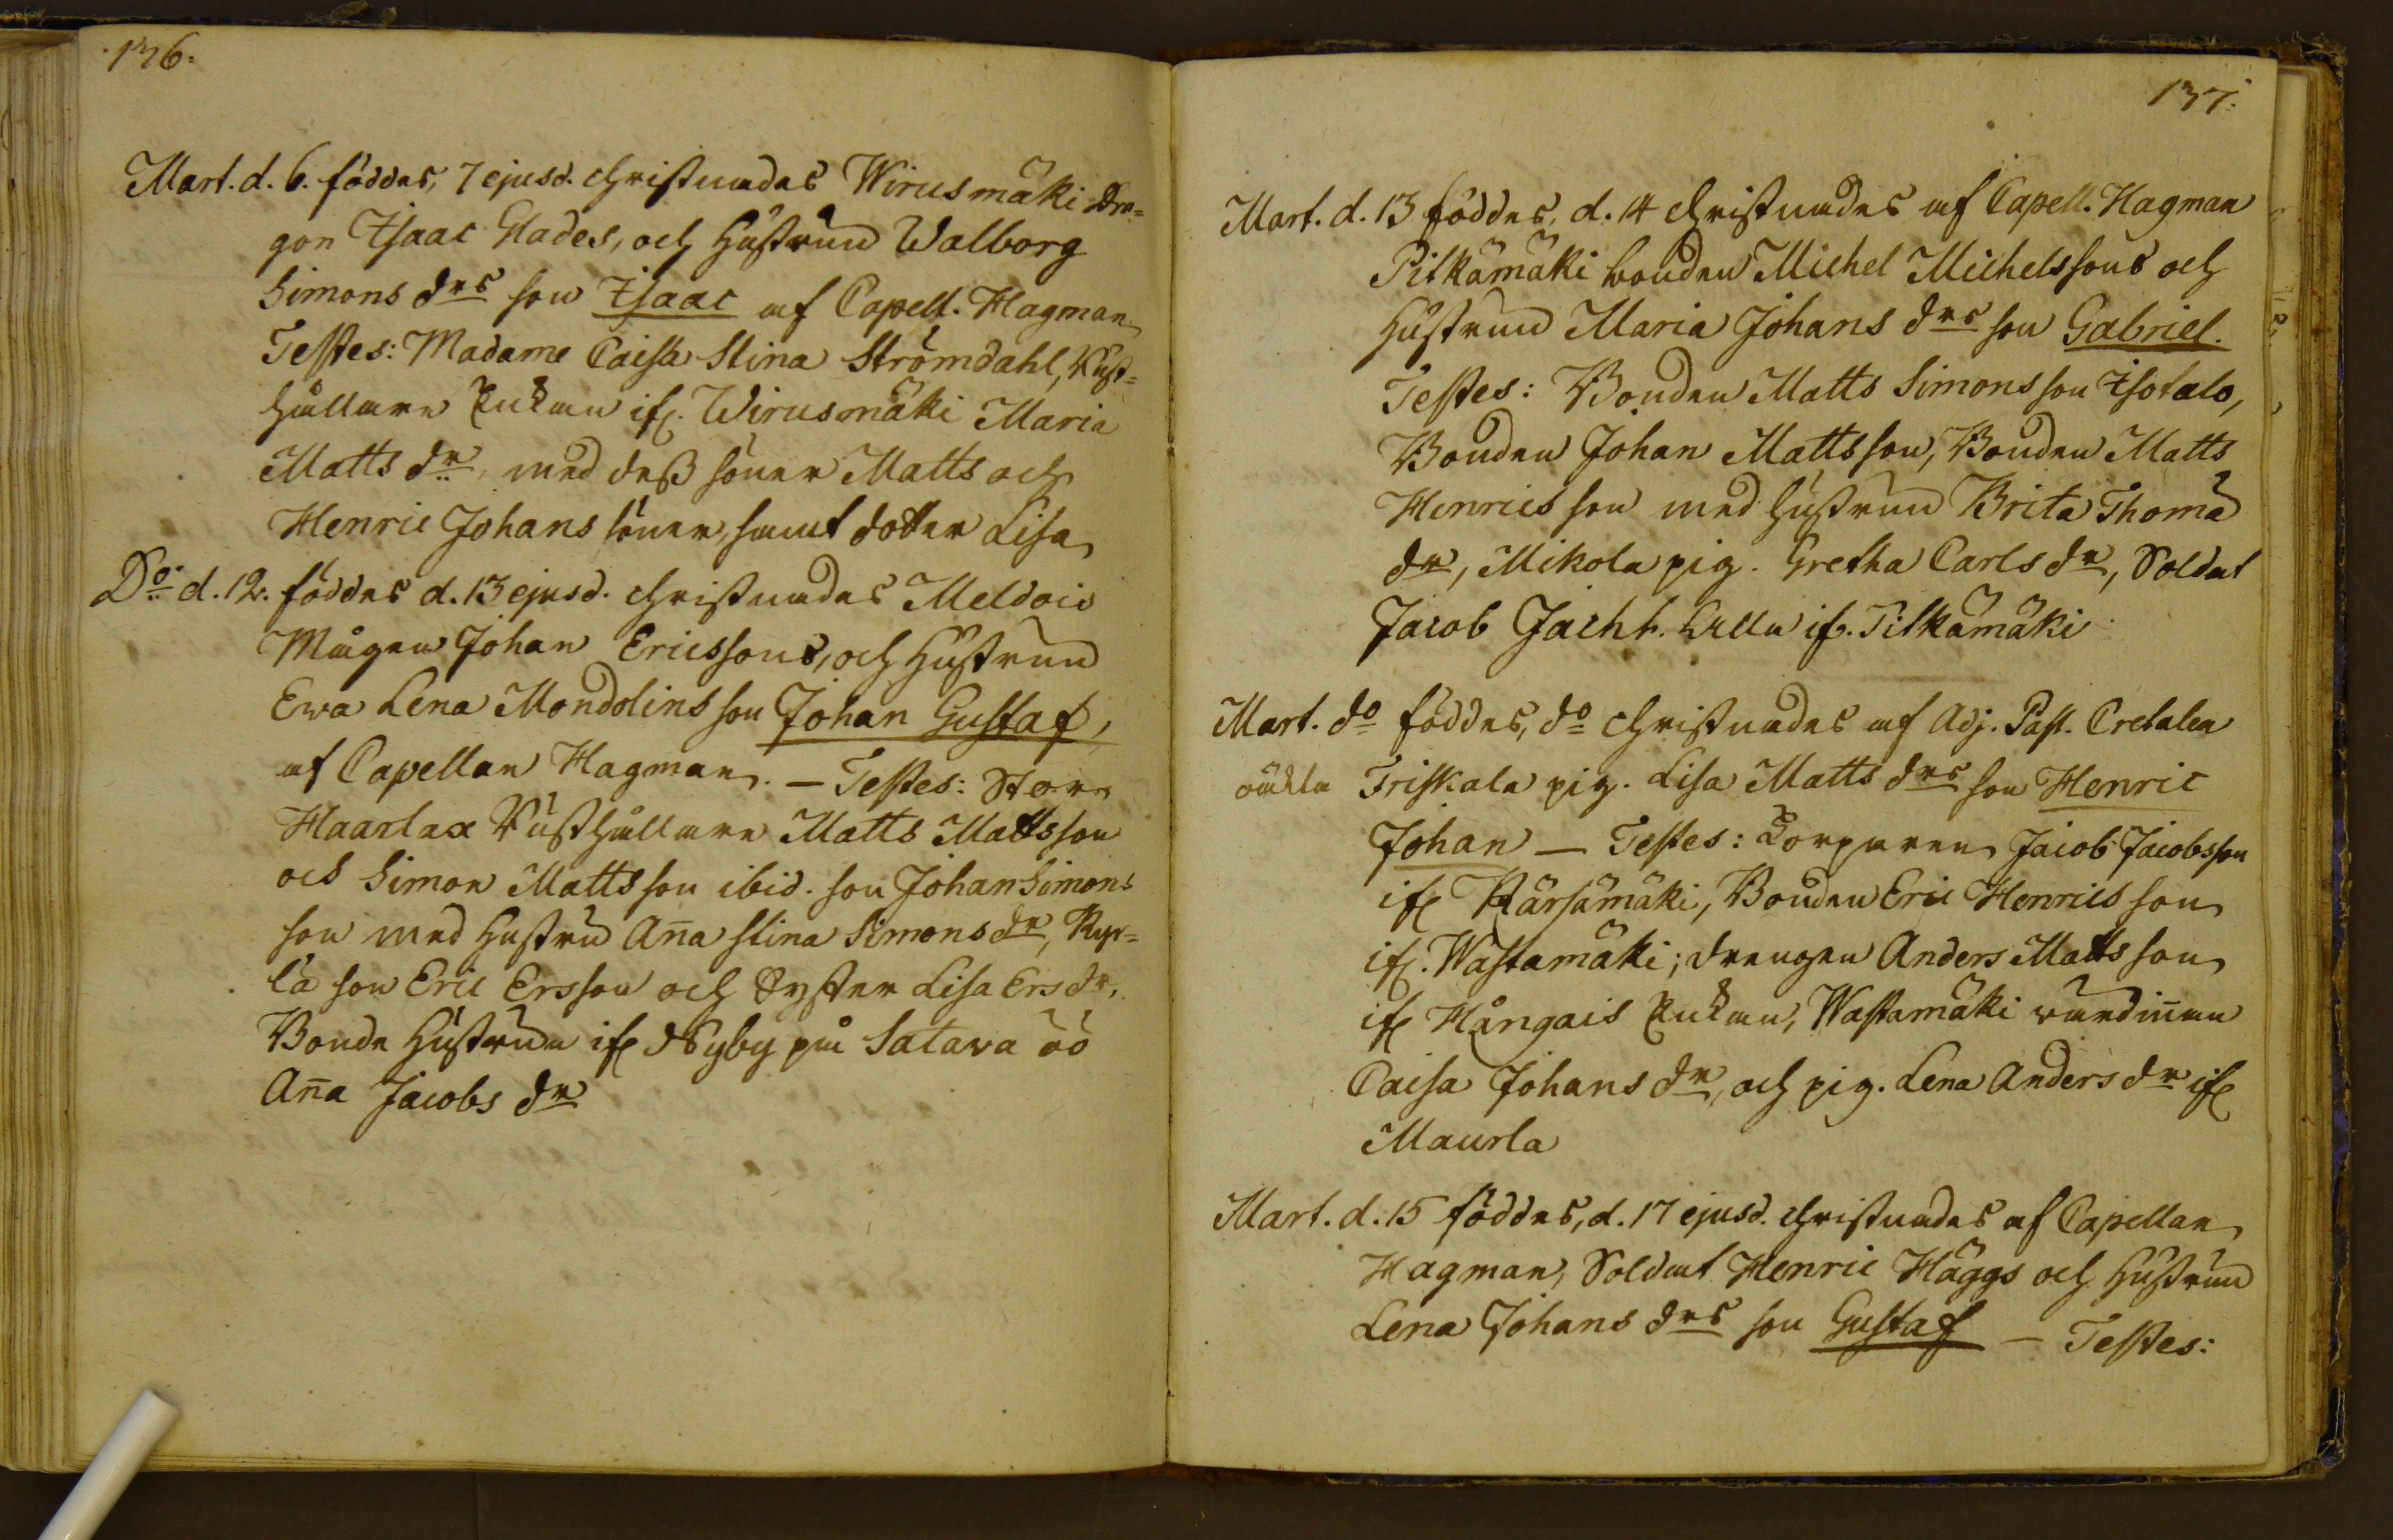 136.
Mart. d. 6. föddes, 7 ejusd. christnades Wirusmäki Dra=
gon Isaac Glades, och Hustrun Walborg
Simons drs son Isaac af Capell. Hagman
Testes: Madame Caisa Stina Strömdahl, Rust=
hållare Enkan ifr. Wirusmäki Maria
Matts dr, med dess söner Matts och
Henric Johans söner, samt dotter Lisa
Do d. 12. föddes d. 13 ejusd. christnades Meldois
Mågen Johan Ericssons, och Hustrun
Ewa Lena Mondolins son Johan Gustaf,
af Capellan Hagman. — Testes: Stor
Haarlax Rusthållare Matts Mattsson
och Simon Mattsson ibid. son Johan Simons
son med Hustru Aña Stina Simons dr, Kyr=
lä son Eric Ersson och Syster Lisa Ers dr,
Bonde Hustrun ifr Nyby på Satava öö
Aña Jacobs dr
137.
Mart. d. 13 föddes, d. 14 christnades af Capell. Hagman
Pitkämäki bonden Michel Michelssons och
Hustrun Maria Johans drs son Gabriel.
Testes: Bonden Matts Simonsson Isotalo,
Bonden Johan Mattsson, Bonden Matts
Henricsson med Hustrun Brita Thomä
dr, Mikola pig. Gretha Carls dr, Soldat
Jacob Jacht. alla ifr. Pitkämäki
Mart. do föddes, do christnades af Adj. Past. Cretalen
oäckta Friskala pig. Lisa Matts drs son Henric
Johan — Testes: Torparen Jacob Jacobsson
ifr Kärsämäki, Bonden Eric Henricsson
ifr. Wästämäki; drengen Anders Mattsson
ifr Hångais Enkan, Wastamäki wärdiñan
Caisa Johans dr, och pig. Lena Anders dr ifr
Maurla
Mart. d. 15 föddes, d. 17 ejusd. christnades af Capellan
Hagman, Soldat Henric Häggs och Hustrun
Lena Johans drs son Gustaf — Testes: